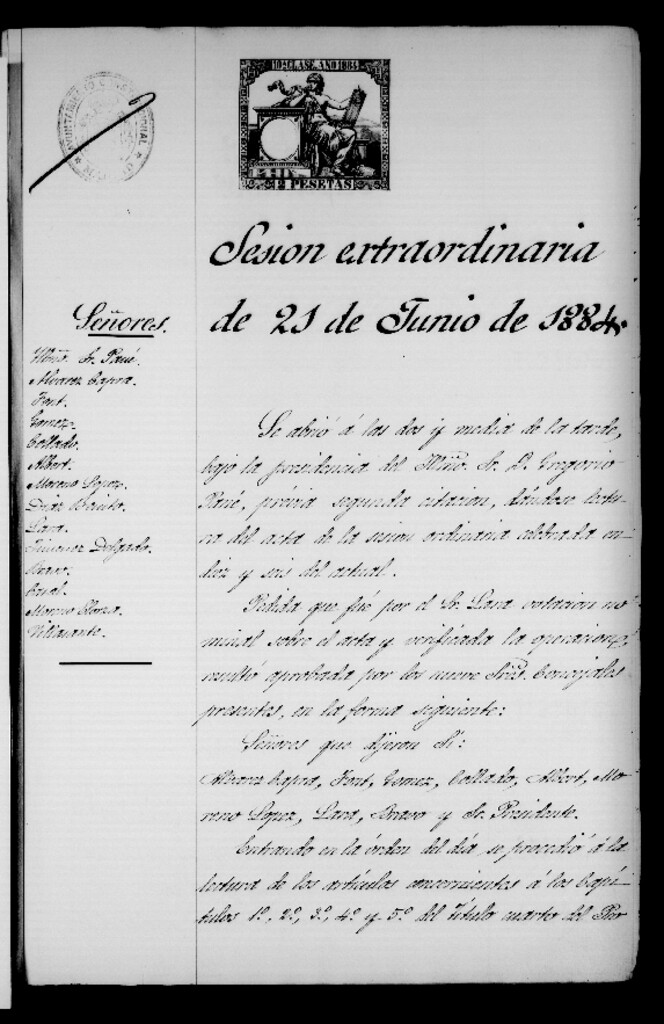 10ª CLASE AÑO 1884
2 PESETAS
AYUNTAMIENTO CONSTITUCIONAL
Sesion extraordinaria
de 21 de Junio de 1884.
Señores.
Ilmo. Sr. Pané.
Alvarez Capra.
Font.
Gomez.
Collado.
Albert.
Moreno Lopez.
Diaz Benito.
Lara.
Gimenez Delgado.
Bravo.
Moreno Elorza.
Villasante.
Se abrió á las dos y media de la tarde,
bajo la presidencia del Illmo. Sr. D. Gregorio
Pané, prévia segunda citacion, dándose lectu-
ra del acta de la sesion ordinaria celebrada en
diez y seis del actual.
Pedida que fué por el Sr. Lara votacion no-
minal sobre el acta y verificada la operacion,
resultó aprobada por los nueve Sres. Concejales
presentes, en la forma siguiente:
Señores que dijeron Sí:
Alvarez Capra, Font, Gomez, Collado, Albert, Mo-
reno Lopez, Lara, Bravo y Sr. Presidente.
Entrando en la órden del dia se procedió á la
lectura de los artículos concernientes á los Capí-
tulos 1º, 2º, 3º, 4º y 5º del Título cuarto del Pro